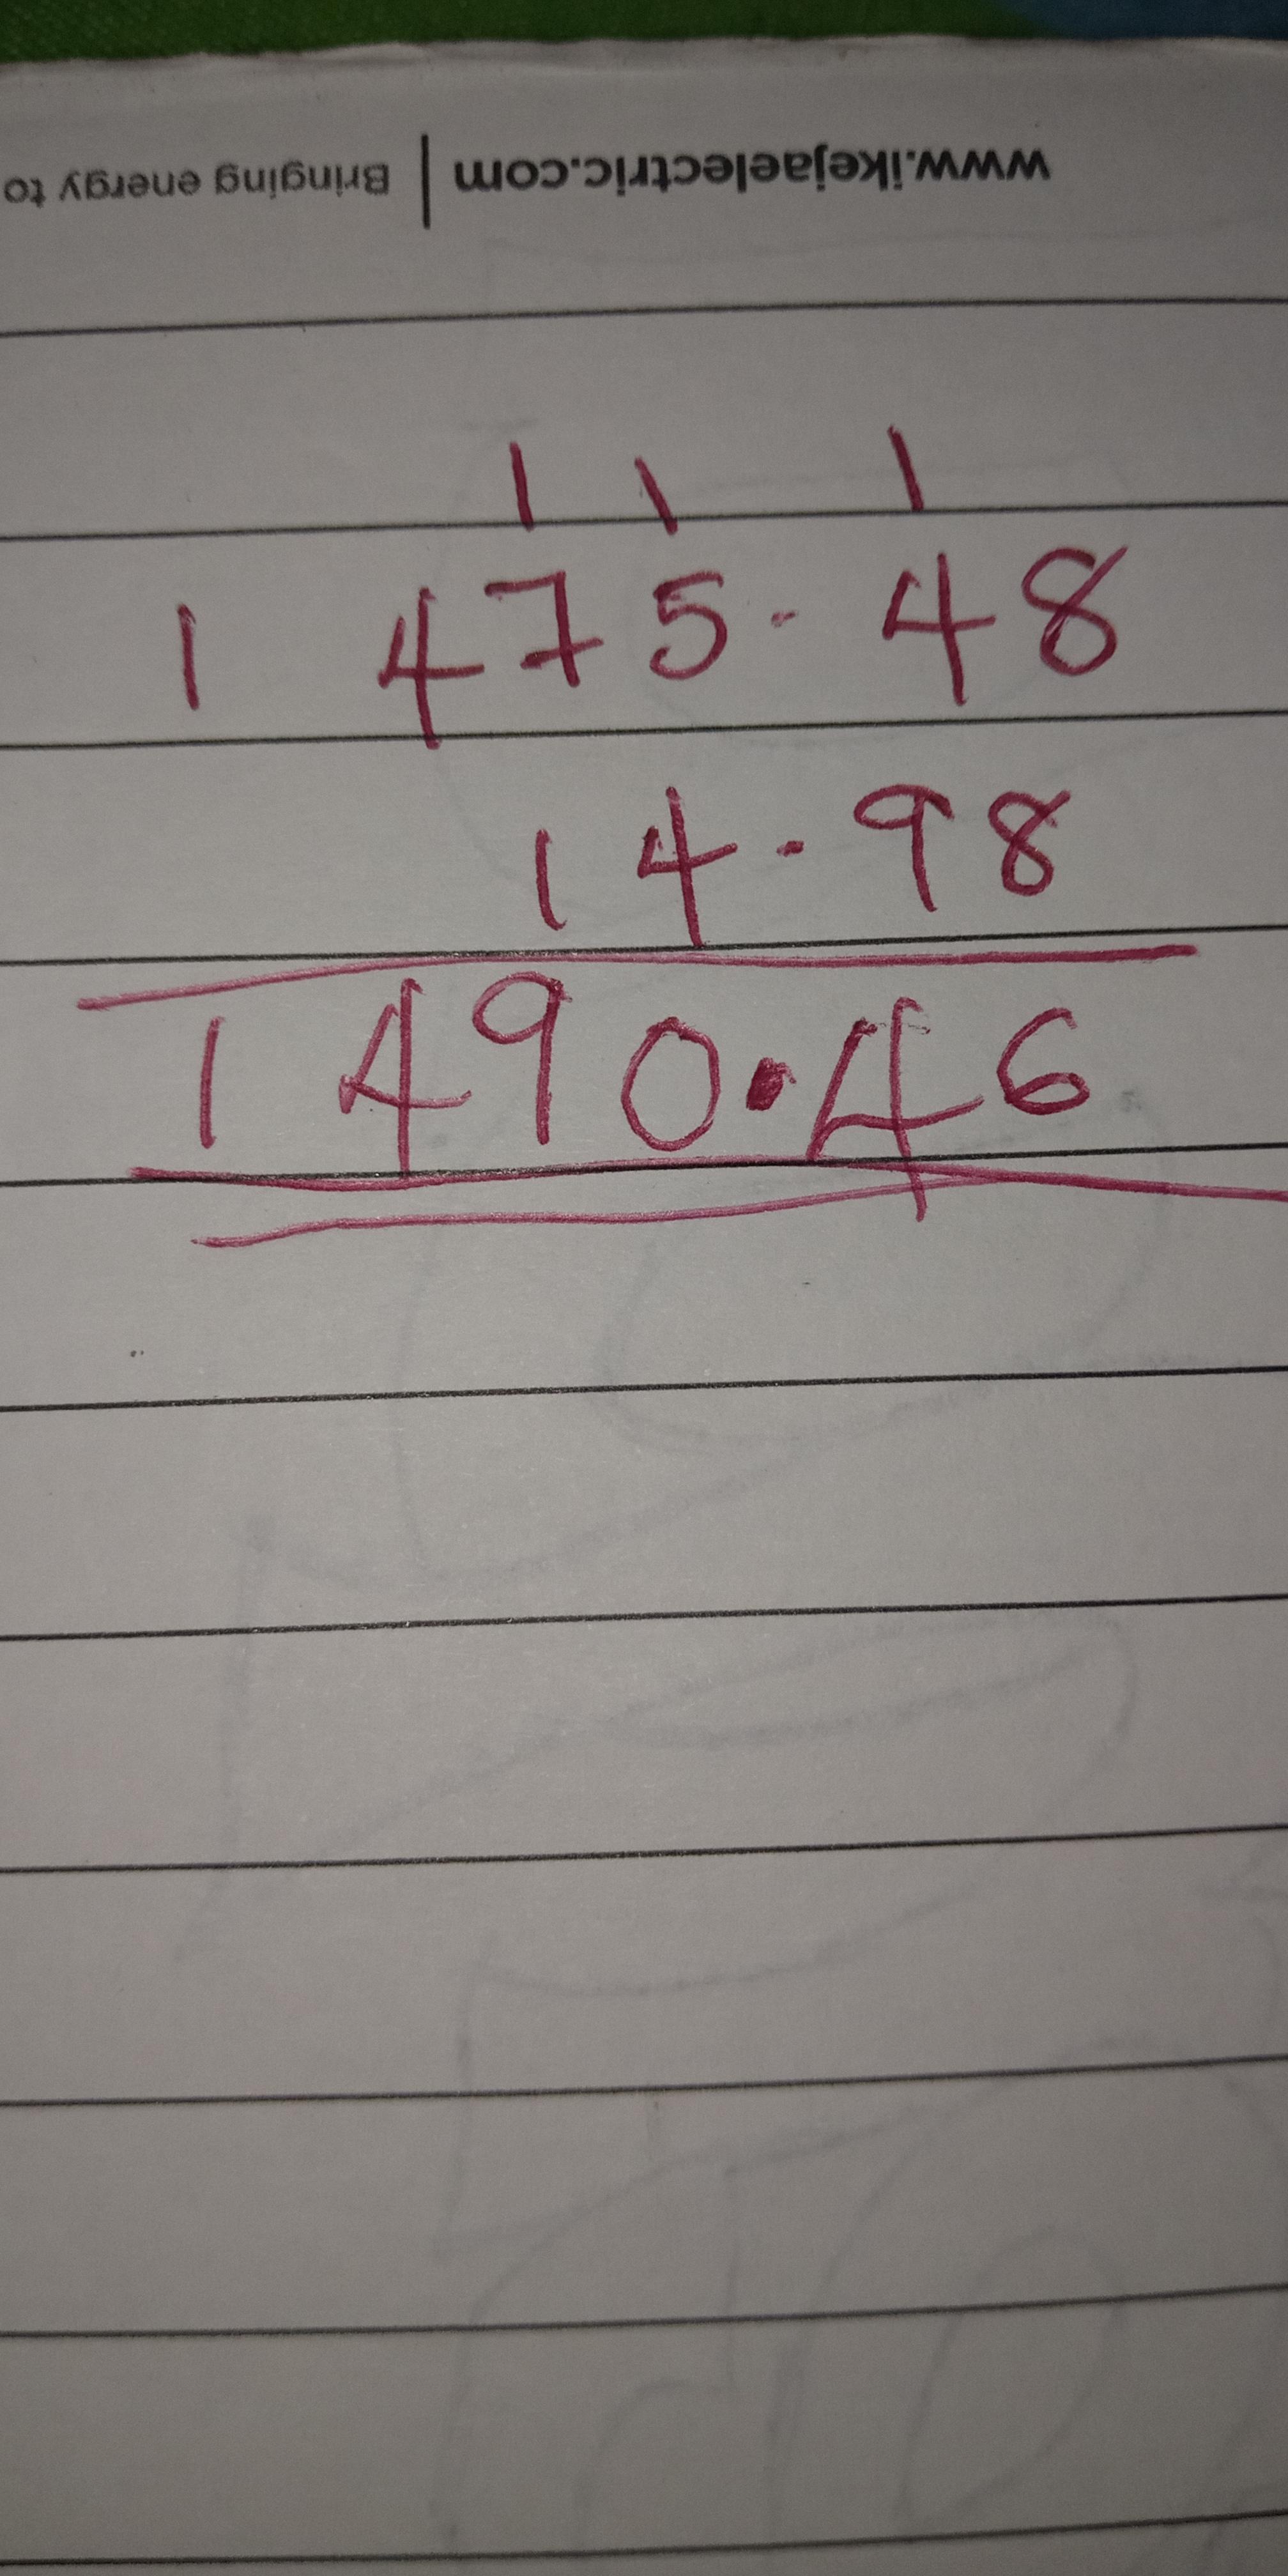 www.ikejaelectric.com | Bringing energy to
1 1 1
1 475.48
14.98
1 490.46